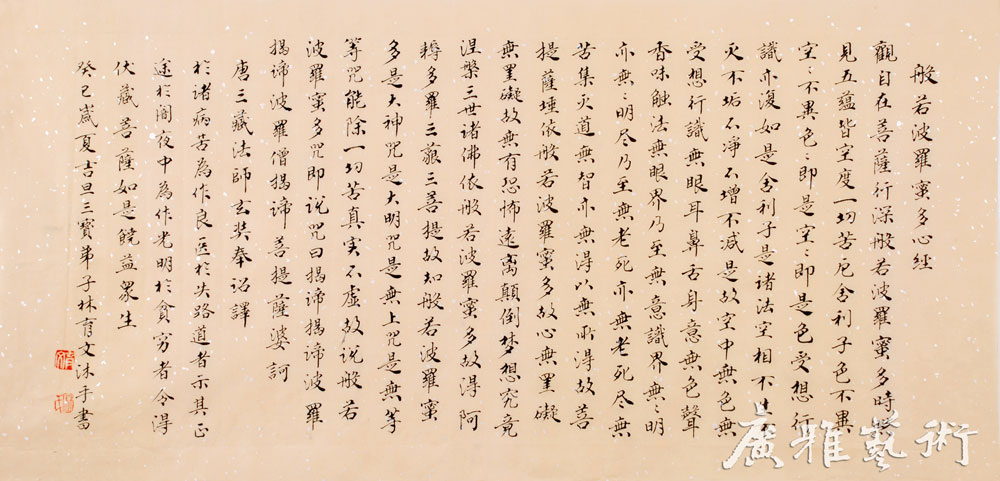 般若波羅蜜多心經
觀自在菩薩行深般若波羅蜜多時照
見五蘊皆空度一切苦厄舍利子色不異
空〻不異色〻即是空〻即是色受想行
識亦復如是舍利子是諸法空相不生
灭不垢不净不增不减是故空中無色無
受想行識無眼耳鼻舌身意無色聲
香味触法無眼界乃至無意識界無〻明
亦無〻明尽乃至無老死亦無老死尽無
苦集灭道無智亦無得以無所得故菩
提薩埵依般若波羅蜜多故心無罣礙
無罣礙故無有恐怖遠離顛倒梦想究竟
涅槃三世諸佛依般若波羅蜜多故得阿
耨多羅三藐三菩提故知般若波羅蜜
多是大神咒是大明咒是無上咒是無等
等咒能除一切苦真实不虚故说般若
波羅蜜多咒即说咒曰揭谛揭谛波羅
揭谛波羅僧揭谛菩提薩婆訶
唐三藏法師玄奘奉詔譯
於諸病苦為作良医於失路道者示其正
途於闇夜中為作光明於貧穷者令得
伏藏菩薩如是饒益眾生
癸巳嵗夏吉旦三寶弟子林育文沐手書
廣雅藝術